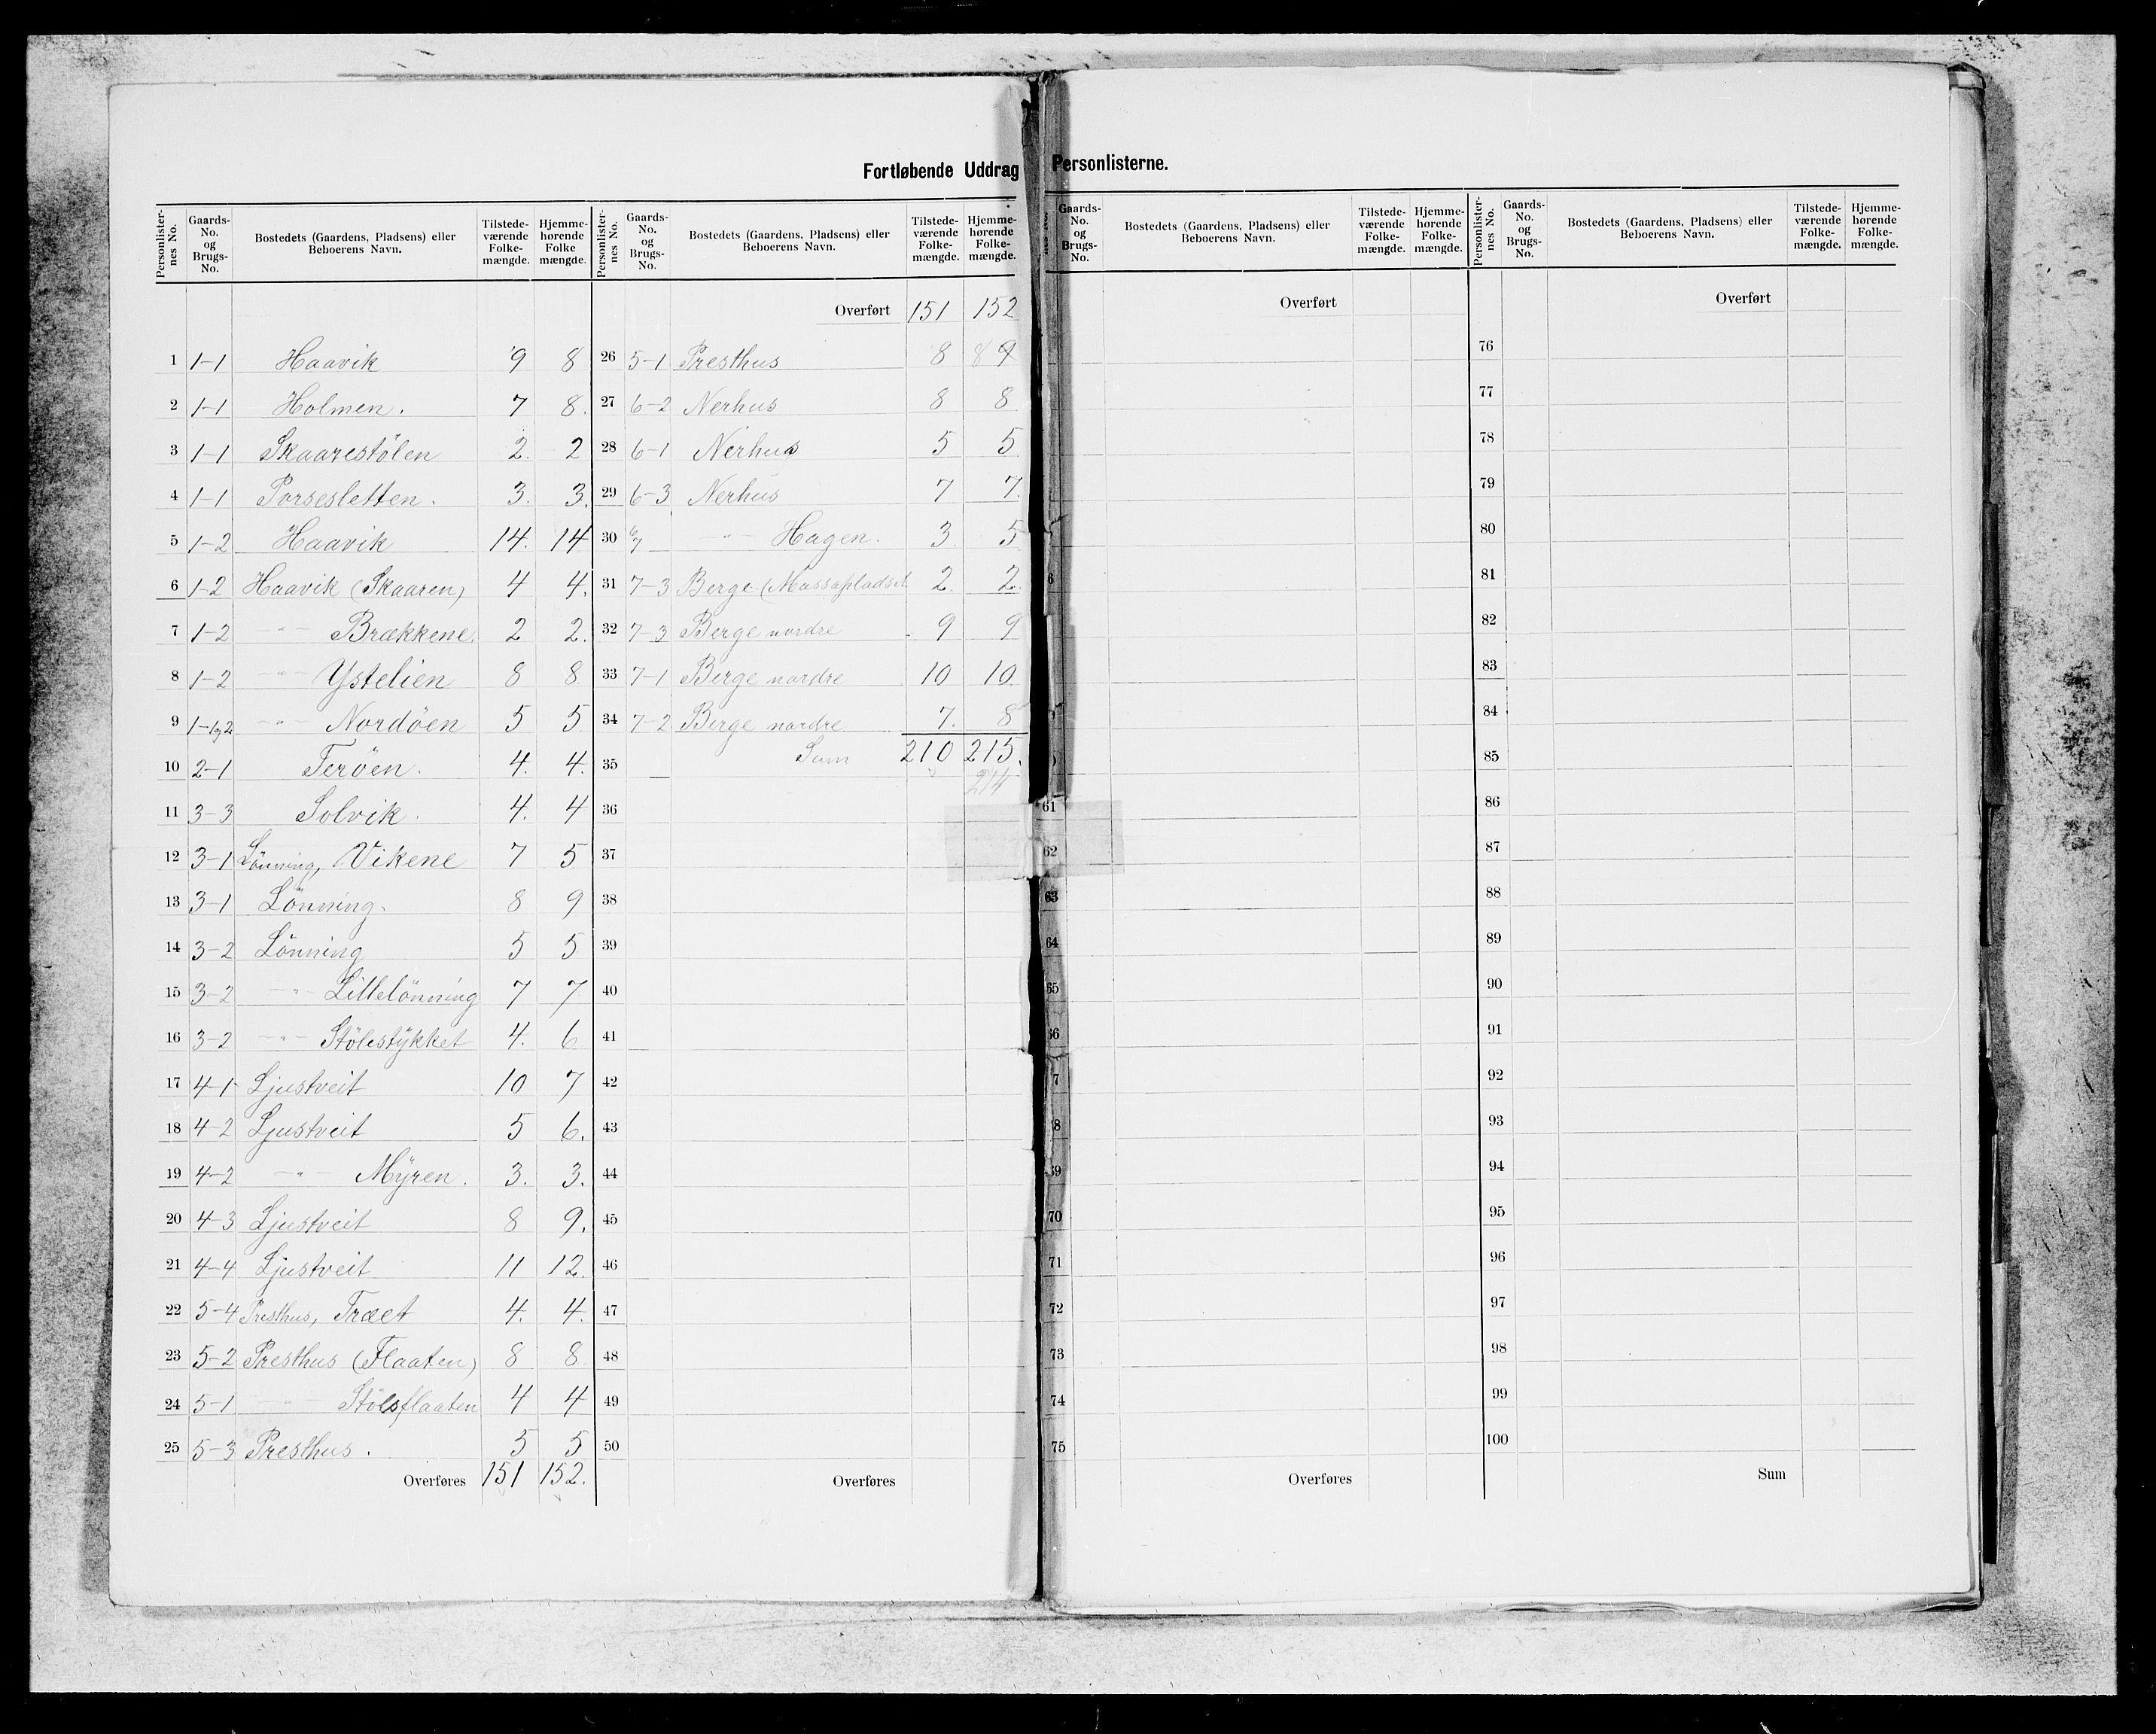 Fortløbende Uddrag Personlisterne.
Personlister-nes No. | Gaards-No. og Brugs-No. | Bostedets (Gaardens, Pladsens) eller Beboerens Navn. | Tilstede-værende Folke-mængde. | Hjemme-hørende Folke mængde.
1 1-1 Haavik 9 8
2 1-1 Holmen. 7 8.
3 1-1 Skaarestølen 2. 2
4 1-1 Porsesletten. 3. 3.
5 1-2 Haavik 14. 14
6 1-2 Haavik (Skaaren) 4 4.
7 1-2 -"- Brækkene. 2 2.
8 1-2 -"- Ystelien 8 8
9 1-1 og 2 -"- Nordöen 5 5
10 2-1 Teröen. 4. 4.
11 3-3 Solvik. 4. 4
12 3-1 Lönning, Vikene 7 5
13 3-1 Lönning. 8 9
14 3-2 Lönning 5 5
15 3-2 -"- Littelönning 7 7
16 3-2 -"- Stölestykket 4. 6
17 4-1 Ljustveit 10 7
18 4-2 Ljustveit 5 6.
19 4-2 -"- Mÿren. 3. 3.
20 4-3 Ljustveit 8 9.
21 4-4 Ljustveit 11 12.
22 5-4 Presthus, Træet 4. 4.
23 5-2 Presthus (Flaaten) 8 8
24 5-1 -"- Stölsflaaten 4 4
25 5-3 Presthus. 5 5
Overføres 151 152.
Personlister-nes No. | Gaards-No. og Brugs-No. | Bostedets (Gaardens, Pladsens) eller Beboerens Navn. | Tilstede-værende Folke-mængde. | Hjemme-hørende Folke-mængde.
Overført 151 152
26 5-1 Presthus 8 8 9
27 6-2 Nerhus 8 8
28 6-1 Nerhus 5 5
29 6-3 Nerhus 7 7.
30 6/7 -"- Hagen. 3. 5
31 7-3 Berge (Massapladset 2. 2
32 7-3 Berge nordre 9 9
33 7-1 Berge nordre 10 10.
34 7-2 Berge nordre 7. 8
35 Sum 210 215.
214
36
37
38
39
40
41
42
43
44
45
46
47
48
49
50
Overføres
Gaards-No. og Brugs-No. | Bostedets (Gaardens, Pladsens) eller Beboerens Navn. | Tilstede-værende Folke-mængde. | Hjemme-hørende Folke-mængde.
Overført
61
62
63
64
65
66
7
8
69
70
71
72
73
74
75
Overføres
Personlister-nes No. | Gaards-No. og Brugs-No. | Bostedets (Gaardens, Pladsens) eller Beboerens Navn. | Tilstede-værende Folke-mængde. | Hjemme-hørende Folke-mængde.
Overført
76
77
78
79
80
81
82
83
84
85
86
87
88
89
90
91
92
93
94
95
96
97
98
99
100
Sum